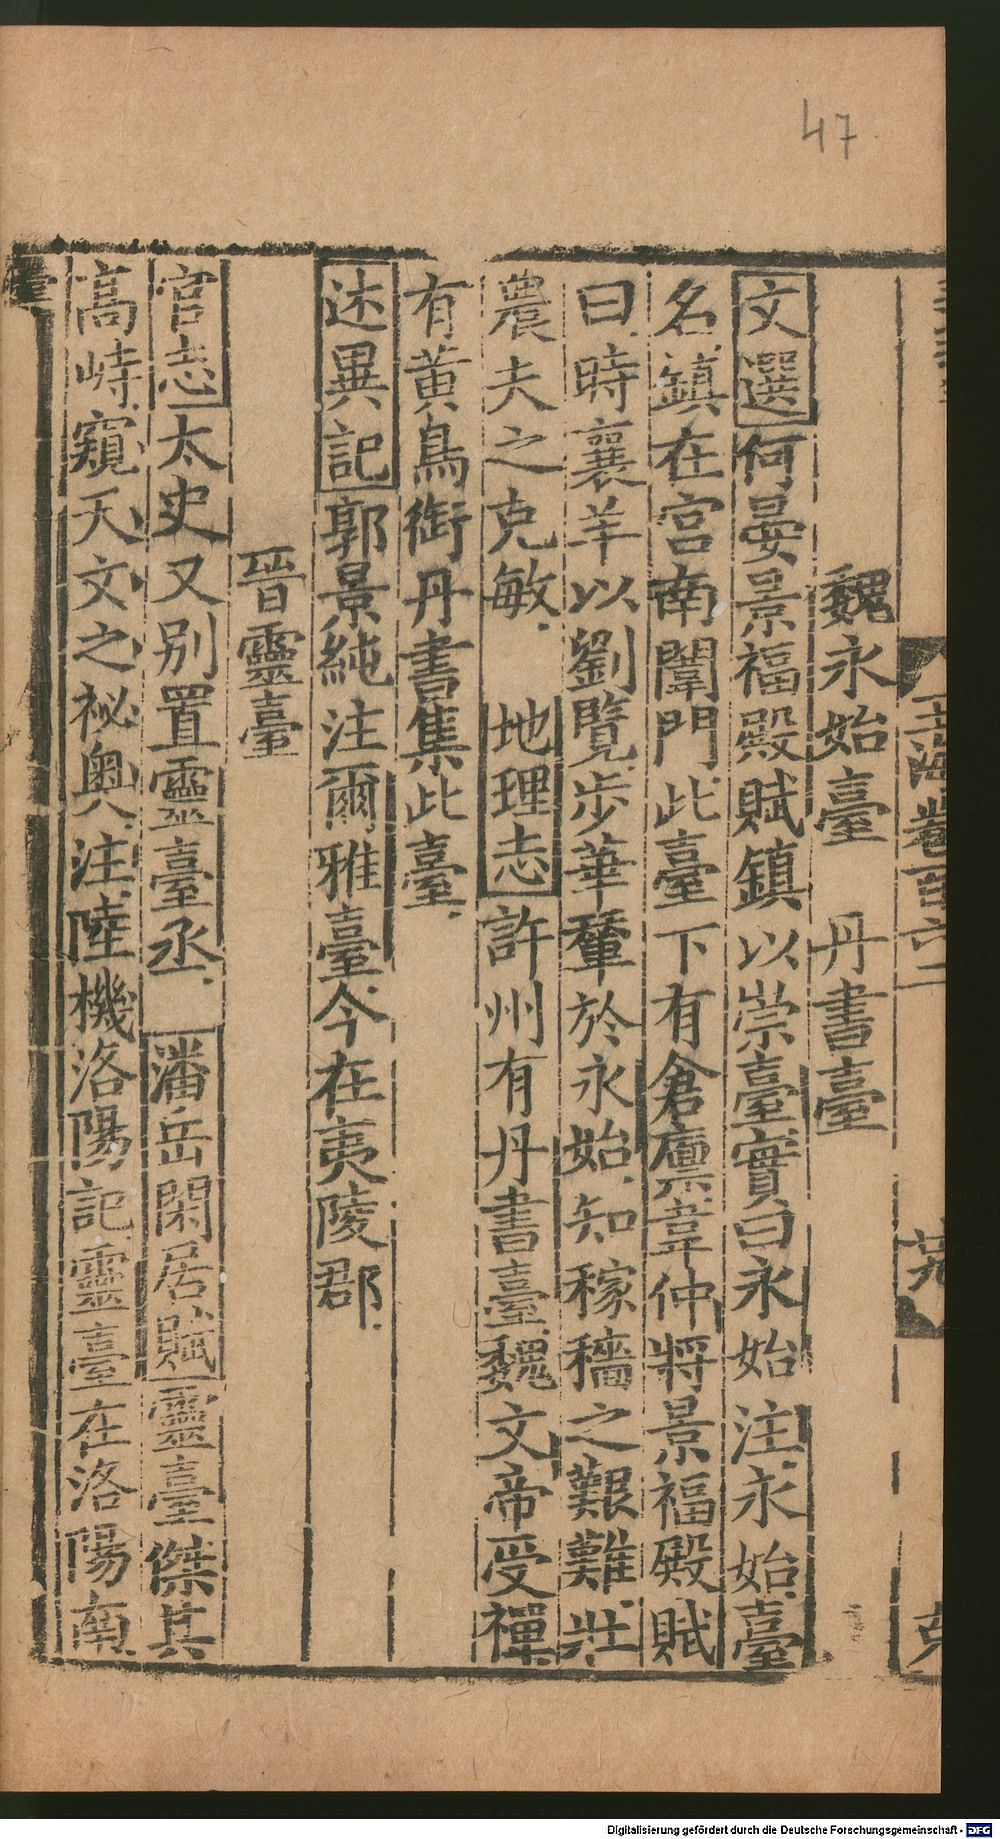 47
玉海卷百六二
魏永始臺　丹書臺
文選何晏景福殿賦鎮以崇臺實曰永始注永始臺
名鎮在宮南闈門此臺下有倉廩韋仲將景福殿賦
曰時襄羊以劉覽步華輦於永始知稼穡之艱難壯
農夫之克敏　地理志許州有丹書臺魏文帝受禪
有黃鳥銜丹書集此臺
述異記郭景純注爾雅臺今在夷陵郡
晉靈臺
官志太史又別置靈臺丞　潘岳閑居賦靈臺傑其
高峙窺天文之祕奧注陸機洛陽記靈臺在洛陽南
Digitalisierung gefördert durch die Deutsche Forschungsgemeinschaft - DFG